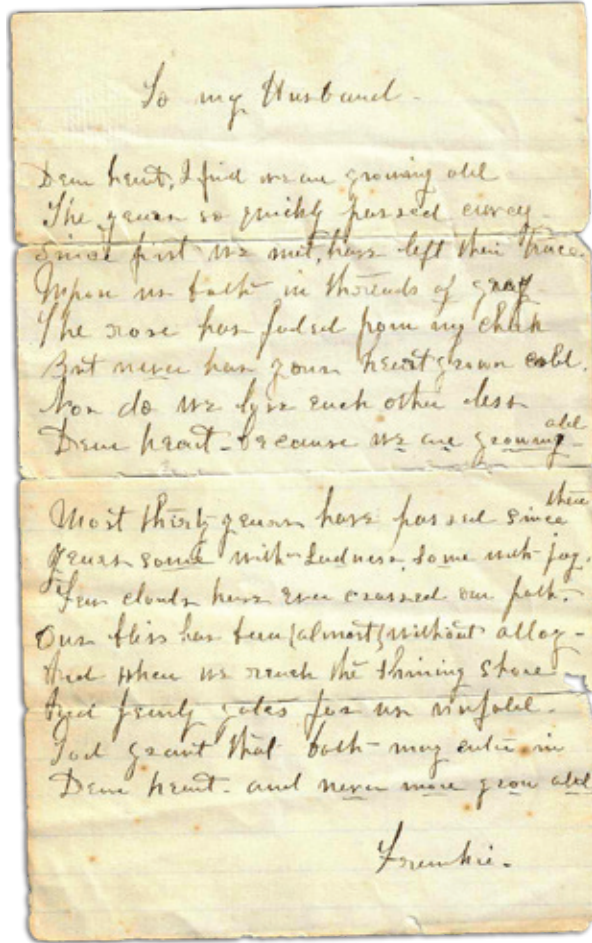 To my Husband -
Dear heart, I find we are growing old
The years so quickly passed away
Since first we met, have left their trace.
Upon us both in threads of gray
The rose has faded from my cheek
But never has your heart grown cold.
Nor do we love each other less
Dear heart - because we are growing old -
Most thirty years have passed since then
Years some with sadness, some with joy.
Few clouds have ever crossed our path.
Our bliss has been (almost) without alloy -
And when we reach the shining shore
And pearly gates for us unfold.
God grant that both may enter in
Dear heart - and never more grow old
Frankie.